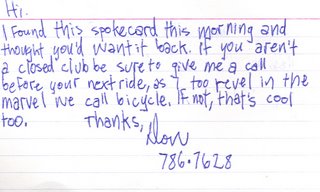 Hi.
I found this spokecard this morning and
thought you'd want it back. If you aren't
a closed club be sure to give me a call
before your next ride, as I too revel in the
marvel we call bicycle. If not, that's cool
too. Thanks,
Don
786.7628